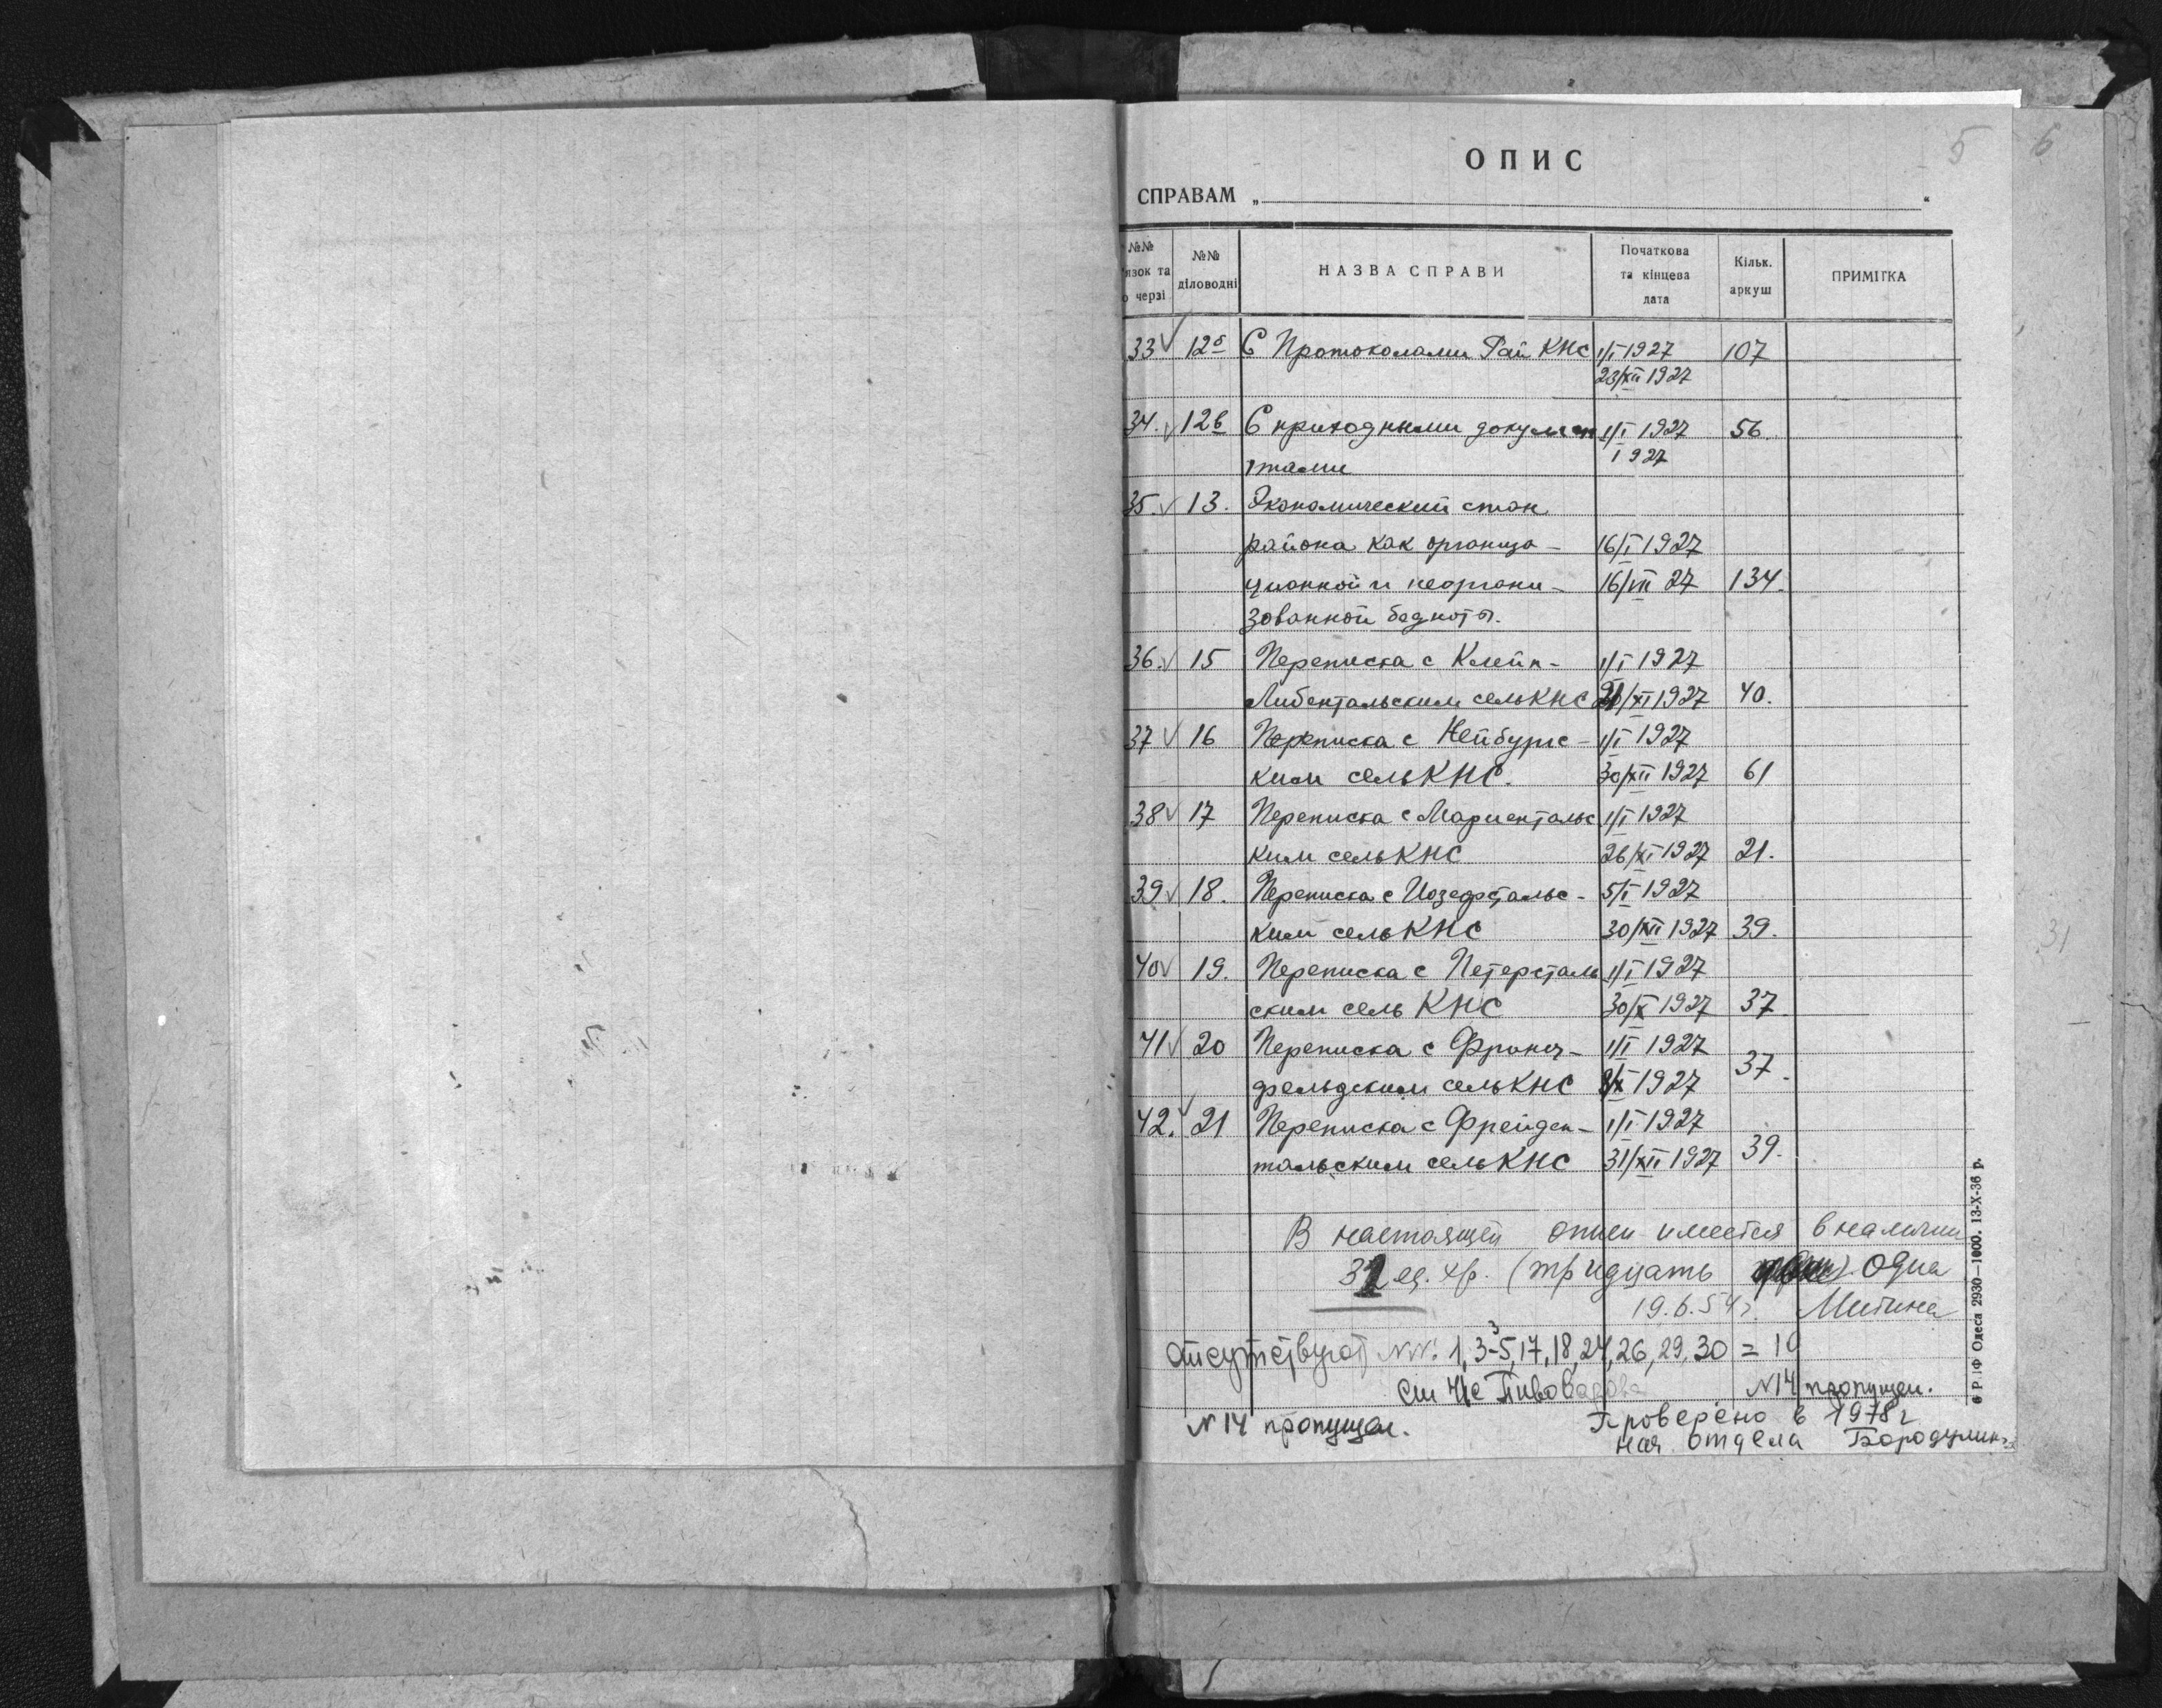 5 6
ОПИС
СПРАВАМ „ “
№№ язок та о черзі
№№ діловодні
НАЗВА СПРАВИ
Початкова та кінцева дата
Кільк. аркуш
ПРИМІТКА
33 12б С Протоколами Рай КНС 1/I 1927 107
23/XII 1927
34. 12в С приходными докумен 1/I 1927 56.
тами 1927
35. 13. Экономический стан
района как организа- 16/I 1927
ционной и неоргани- 16/VII 27 134.
зованной бедноты.
36. 15 Переписка с Клейн- 1/I 1927
Либентальским сельКНС /XI 1927 40.
37 16 Переписка с Нейбургс- 1/I 1927
ким сельКНС. 30/XII 1927 61
38 17 Переписка с Мариентальс 1/I 1927
ким сельКНС 26/XI 1927 21.
39 18. Переписка с Иозефстальс- 5/I 1927
ким сельКНС 30/XII 1927 39.
40 19. Переписка с Петерсталь 1/I 1927
ским сель КНС 30/X 1927 37.
41 20 Переписка с Франц- 1/I 1927
фельдским сельКНС /X 1927 37.
42. 21 Переписка с Фрейден- 1/I 1927
тальским сельКНС 31/XII 1927 39.
В настоящей описи имеется в наличии
31 ед. хр. (тридцать одна
19.6.54 г. Митина
Отсутствуют №№: 1, 3-5, 17, 18, 24, 26, 29, 30 = 10
Пивоварова №14 пропущен.
№ 14 пропущен.
Проверено в 1978 г
нач. отдела Бородулин
31
Р.ІФ Одеса 2930—1000. 13-X-36 р.